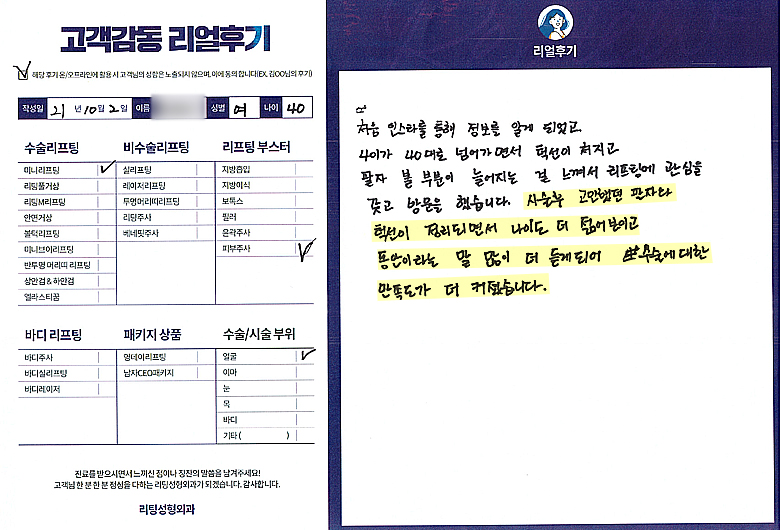 고객감동 리얼후기
해당 후기 온/오프라인에 활용 시 고객님의 성함은 노출되지 않으며, 이에 동의 합니다(EX. 김OO님의 후기)
작성일 21 년 10 월 2 일 이름 성별 여 나이 40
수술리프팅
미니리프팅
리팅풀거상
리팅M리프팅
안면거상
볼럭리프팅
미니브이리프팅
반투명 머리띠 리프팅
상안검 & 하안검
엘라스티꿈
비수술리프팅
실리프팅
레이저리프팅
투명머리띠리프팅
리팅주사
베네핏주사
리프팅 부스터
지방흡입
지방이식
보톡스
필러
윤곽주사
피부주사
바디 리프팅
바디주사
바디실리프팅
바디레이저
패키지 상품
엄데이리프팅
남자CEO패키지
수술/시술 부위
얼굴
이마
눈
목
바디
기타 ( )
진료를 받으시면서 느끼신 점이나 칭찬의 말씀을 남겨주세요!
고객님 한 분 한 분 정성을 다하는 리팅성형외과가 되겠습니다. 감사합니다.
리팅성형외과
리얼후기
처음 인스타를 통해 정보를 알게 되었고
나이가 40대로 넘어가면서 턱선이 쳐지고
팔자 볼 부분이 늘어지는 걸 느껴서 리프팅에 관심을
갖고 방문을 했습니다. 시술후 고민했던 팔자와
턱선이 정리되면서 나이도 더 젊어보이고
동안이라는 말 많이 더 듣게되어 수술에 대한
만족도가 더 커졌습니다.